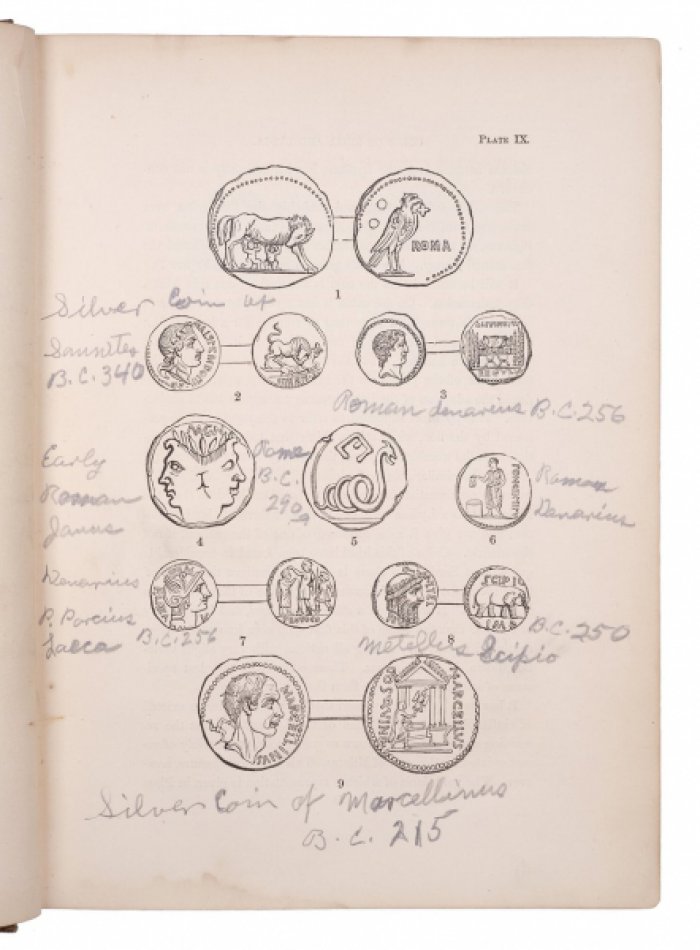 PLATE IX.
ROMA
1
Silver Coin of
Samnites
B.C. 340
2
3
Roman denarius B.C. 256
Early
Roman
Janus
Rome
B.C.
290
4
5
6
Roman
Denarius
Denarius
P. Porcius
Laeca B.C. 256
7
SCIPIO
IMP
8
B.C. 250
Metellus Scipio
MARCELLINVS
MARCELLVS
9
Silver Coin of Marcellinus
B.C. 215